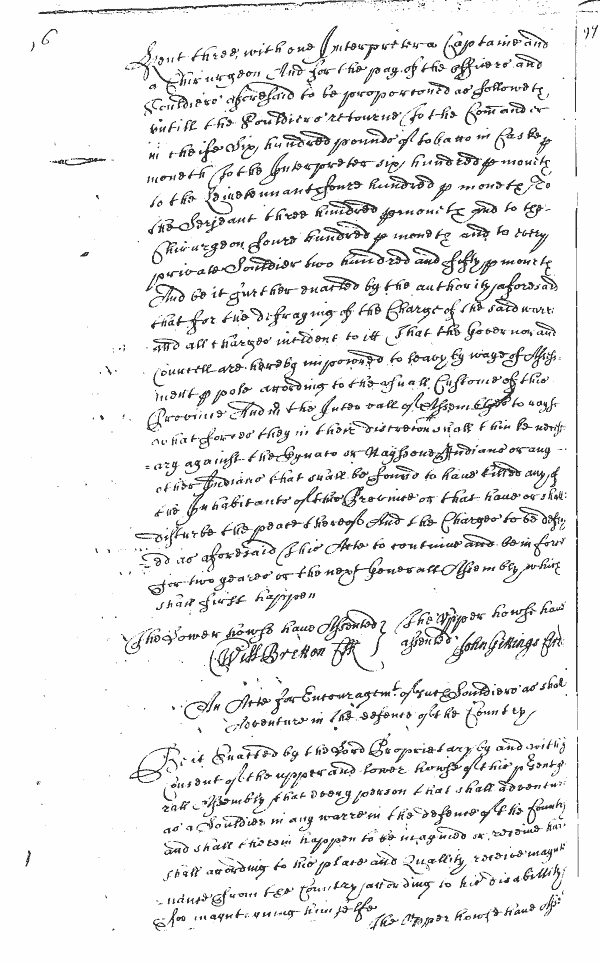 16
97
Sent three, with one Interpreter a Captaine and
a Chirurgeon And for the pay of the officers and
Souldiers aforesaid to be proportioned as followeth
vntill the Souldiers returne To the Comander
in cheife Six hundred pounds of tobacco in Caske p
moneth To the Interpreter six hundred p moneth
to the Lieutennant foure hundred p moneth, To
the Serjeant three hundred p moneth and to the
Chirurgeon foure hundred p moneth and to every
private Souldier two hundred and fifty p moneth
And be it further enacted by the authority aforesaid
that for the defraying of the Charge of the said warr
and all charges incident to itt That the Governor and
Councell are hereby impowred to leavy by waye of Assess-
ment p pole according to the usuall Custome of this
Province And in the Intervall of Assemblyes to rayse
what forces they in their discretion shall thinke necess-
-ary against the or Indians or any
other Indians that shall be found to have killed any of
the Inhabitants of this Province or that have or shall
disturbe the peace thereof And the Charges to be defray-
-ed as aforesaid This Acte to continue and be in force
for two yeares or the next Generall Assembly which
shall first happen
The Lower howse have Assented The Vpper howse have
Will Bretton assented John Gittings
An Acte for Encouragemt. of such Souldiers as shall
Adventure in the defence of the Country
Be it Enacted by the Lord Proprietary by and with
Consent of the upper and lower howse of this pSent Gene
rall Assembly that every person that shall adventure
as a Souldier in any warre in the defence of the Country
and shall therein happen to be maymed or receive hurt
shall according to his place and Quallity receive maynte
-nance from the Country according to his disabillity
for mayntayning himselfe
The Vpper howse have Asse